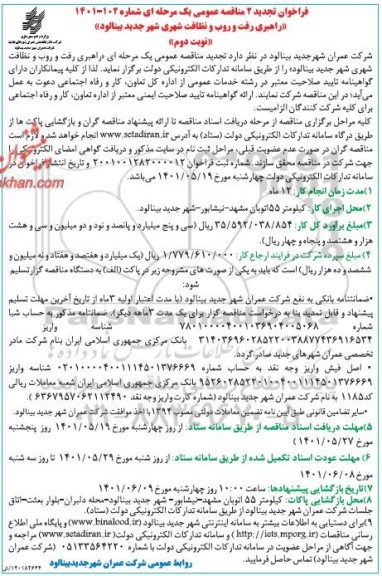 فراخوان تجدید ۲ مناقصه عمومی یک مرحله ای شماره ۱۰۲-۱۴۰۱
«راهبری رفت و روب و نظافت شهری شهر جدید بینالود»
«نوبت دوم»
شرکت عمران شهرجدید بینالود در نظر دارد تجدید مناقصه عمومی یک مرحله ای «راهبری رفت و روب و نظافت
شهری شهر جدید بینالود» را از طریق سامانه تدارکات الکترونیکی دولت برگزار نماید. لذا از کلیه پیمانکاران دارای
گواهینامه تایید صلاحیت معتبر در رشته خدمات عمومی از اداره کل تعاون، کار و رفاه اجتماعی دعوت به عمل
می‌آید؛ در این مناقصه شرکت نمایند. ارائه گواهینامه تایید صلاحیت ایمنی معتبر از اداره تعاون، کار و رفاه اجتماعی
برای کلیه شرکت کنندگان الزامیست.
کلیه مراحل برگزاری مناقصه از مرحله دریافت اسناد مناقصه تا ارائه پیشنهاد مناقصه گران و بازگشایی پاکت ها از
طریق درگاه سامانه تدارکات الکترونیکی دولت (ستاد) به آدرس www.setadiran.ir انجام خواهد شد و لازم است
مناقصه گران در صورت عدم عضویت قبلی، مراحل ثبت نام در سایت مذکور و دریافت گواهی امضای الکترونیکی را
جهت شرکت در مناقصه محقق سازند. شماره ثبت فراخوان ۲۰۰۱۰۰۱۲۸۲۰۰۰۰۱۲ و تاریخ انتشار فراخوان در
سامانه تدارکات الکترونیکی دولت چهارشنبه مورخ ۱۴۰۱/۰۵/۱۹ می‌باشد.
۱)مدت زمان انجام کار: ۱۲ ماه.
۲)محل اجرای کار: کیلومتر ۵۵اتوبان مشهد-نیشابور-شهر جدید بینالود.
۳)مبلغ برآورد کل کار: ۳۵/۵۹۲/۰۳۸/۸۵۴ ریال (سی و پنج میلیارد و پانصد و نود و دو میلیون و سی و هشت
هزار و هشتصد و پنجاه و چهار ریال).
۴) مبلغ سپرده شرکت در فرایند ارجاع کار: ۱/۷۷۹/۶۱۰/۰۰۰ ریال (یک میلیارد و هفتصد و هفتاد و نه میلیون و
ششصد و ده هزار ریال) است که باید به یکی از صورت های مشروحه زیر در پاکت (الف) به دستگاه مناقصه گزار تسلیم
شود:
•ضمانتنامه بانکی به نفع شرکت عمران شهر جدید بینالود (با مدت اعتبار اولیه ۳ماه از تاریخ آخرین مهلت تسلیم
پیشنهاد و قابل تمدید بنا به درخواست مناقصه گزار برای یک مدت ۳ماهه دیگر). ضمانتنامه مذکور به حساب شبا
شماره
تخصصی عمران شهرهای جدید صادر گردد.
•سایر تضامین قانونی طبق آیین نامه تضمین معاملات دولتی مصوب ۱۳۹۴با اخذ موافقت شرکت عمران شهر جدید بینالود.
۵)مهلت دریافت اسناد مناقصه از طریق سامانه ستاد: از روز چهارشنبه مورخ ۱۴۰۱/۰۵/۱۹ تا روز پنجشنبه
مورخ ۱۴۰۱/۰۵/۲۷
۶) مهلت عودت اسناد تکمیل شده از طریق سامانه ستاد: از روز شنبه مورخ ۱۴۰۱/۰۵/۲۹ تا روز سه شنبه
مورخ ۱۴۰۱/۰۶/۰۸
۷)تاریخ بازگشایی پیشنهادها: ساعت ۱۰:۰۰ روز چهارشنبه مورخ ۱۴۰۱/۰۶/۰۹
۸)محل بازگشایی پاکات: کیلومتر ۵۵ اتوبان مشهد-نیشابور- شهر جدید بینالود-محله دلبران-بلوار بعثت-اتاق
جلسات شرکت عمران شهر جدید بینالود و از طریق سامانه تدارکات الکترونیکی دولت (ستاد).
۹)برای دستیابی به اطلاعات بیشتر به سامانه اینترنتی شهر جدید بینالود (www.binalood.ir) و پایگاه ملی اطلاع
رسانی مناقصات (http://iets.mporg.ir) و سامانه تدارکات الکترونیکی دولت (www.setadiran.ir) مراجعه و
جهت آگاهی از مراحل عضویت در سامانه تدارکات الکترونیکی دولت با شماره ۰۵۱۳۳۵۶۴۲۳۰ (شرکت عمران
شهر جدید بینالود) تماس حاصل فرمایید.
روابط عمومی شرکت عمران شهرجدیدبینالود